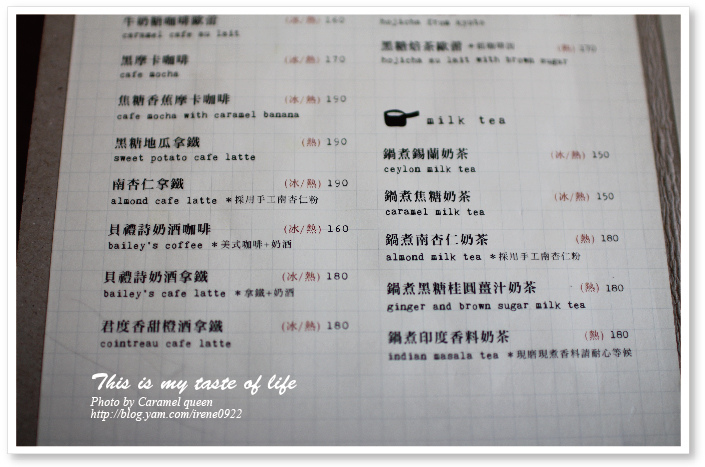 牛奶糖咖啡歐蕾 (冰/熱) 160
caramel cafe au lait
黑摩卡咖啡 (冰/熱) 170
cafe mocha
焦糖香蕉摩卡咖啡 (冰/熱) 190
cafe mocha with caramel banana
黑糖地瓜拿鐵 (熱) 190
sweet potato cafe latte
南杏仁拿鐵 (冰/熱) 190
almond cafe latte *採用手工南杏仁粉
貝禮詩奶酒咖啡 (冰/熱) 160
bailey's coffee *美式咖啡+奶酒
貝禮詩奶酒拿鐵 (冰/熱) 180
bailey's cafe latte *拿鐵+奶酒
君度香甜橙酒拿鐵 (冰/熱) 180
cointreau cafe latte
hojicha from kyoto
黑糖焙茶歐蕾 (熱) 170
hojicha au lait with brown sugar
milk tea
鍋煮錫蘭奶茶 (冰/熱) 150
ceylon milk tea
鍋煮焦糖奶茶 (冰/熱) 150
caramel milk tea
鍋煮南杏仁奶茶 (熱) 180
almond milk tea *採用手工南杏仁粉
鍋煮黑糖桂圓薑汁奶茶 (熱) 180
ginger and brown sugar milk tea
鍋煮印度香料奶茶 (熱) 180
indian masala tea *現磨現煮香料請耐心等候
This is my taste of life
Photo by Caramel queen
http://blog.yam.com/irene0922